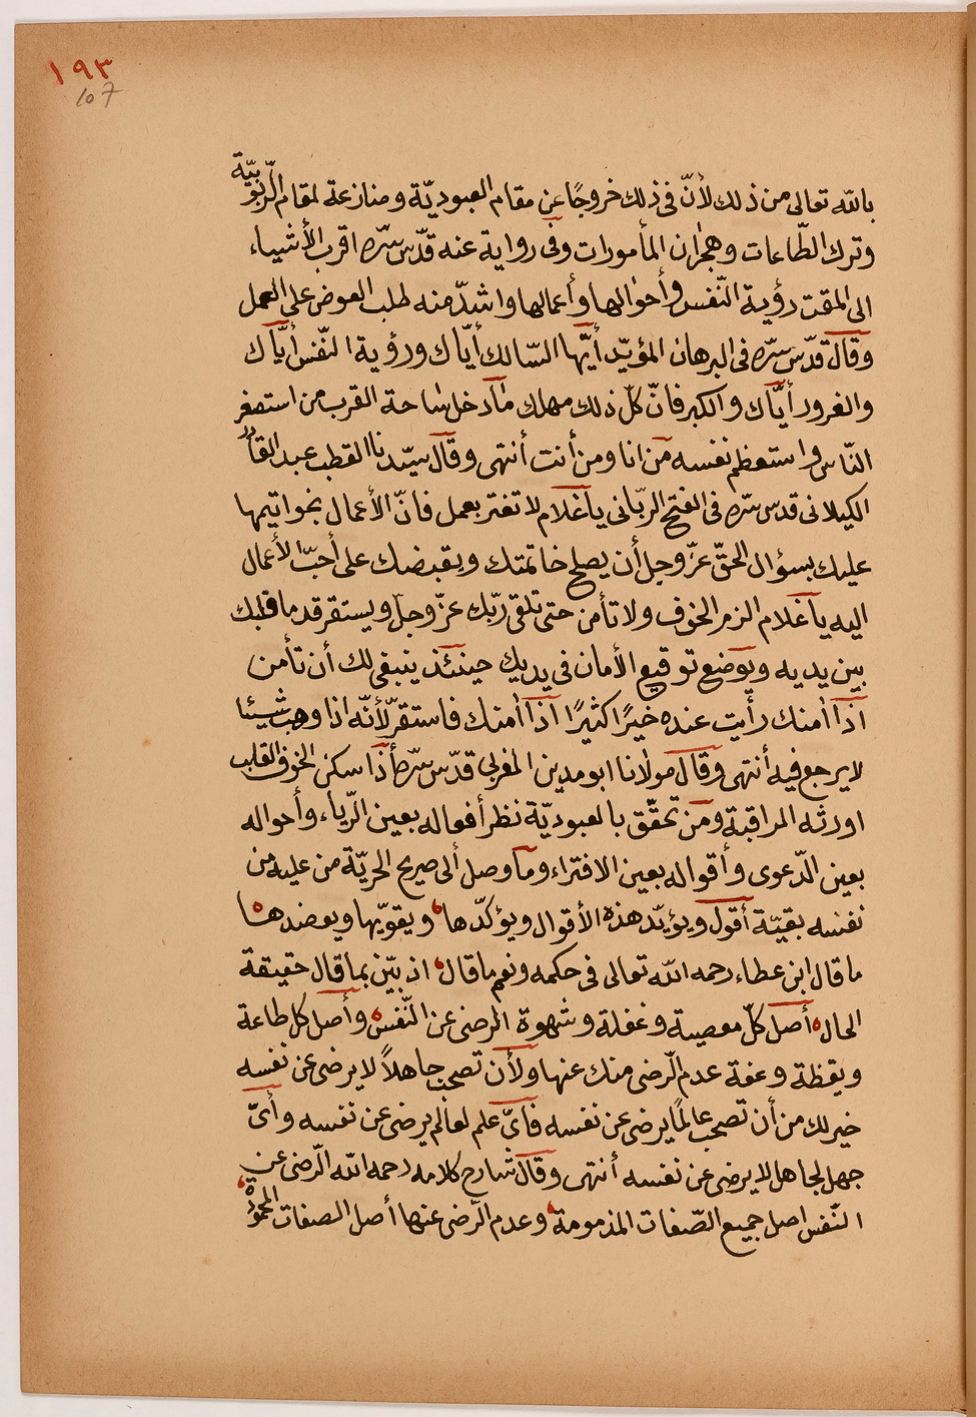 ١٩٣
107
بالله تعالى من ذلك لأنّ فى ذلك خروجًا عن مقام العبوديّة ومنازعة لمقام الّربوبيّة
وترك الطّاعات وهجران المأمورات وفى رواية عنه قدّس سّره اقرب الأشياء
الى المقت رؤية النّفس وأحوالها وأعمالها واشدّ منه طلب العوض على العمل
وقال قدّس سّره فى البرهان المؤيّد أيّها السّالك أيّاك ورؤية النّفس أيّاك
والغرور أيّاك والكبر فانّ كلّ ذلك مهلك مآدخل ساحة القرب من استصغر
النّاس واستعظم نفسه مَن انا ومن أنت أنتهى وقال سيّدنا القطب عبد القادر
الكيلانى قدس سّره فى الفتح الربّانى يآغلام لا تغتر بعمل فانّ الأعمال بخواتيمها
عليك بسؤال الحقّ عزّ وجل أن يصلح خاتمتك ويقبضك على أحبّ الأعمال
اليه يآغلام الزم الخوف ولا تأمن حتى تلقى ربّك عزّ وجلّ ويستقر قدما قلبك
بين يديه ويوضع توقيع الأمان فى يديك حينئذ ينبغى لك أن تأمن
اذآ أمنك رأيت عنده خيرًا كثيرًا اذآ أمنك فاستقرّ لأنّه اذا وهب شيئا
لا يرجع فيه أنتهى وقال مولانا ابو مدين المغربى قدّس سّره أذا سكن الخوف القلب
اورثه المراقبة ومَن تحقّق بالعبوديّة نظر أفعاله بعين الّرياء وأحواله
بعين الدّعوى وأقواله بعين الافتراء ومآ وصل ألى صريح الحريّة من عليه من
نفسه بقيّة أقول ويؤيّد هذه الأقوال ويؤكدّها ويقوّيها ويعضدها
ما قال ابن عطاء رحمه الله تعالى فى حكمه ونعم ما قال اذ بيّن بما قال حقيقة
الحال أصل كلّ معصية وغفلة وشهوة الرضى عن النّفس وأصل كل طاعة
ويقظة وعفة عدم الّرضى منك عنها ولأن تصحب جاهلاً لا يرضى عن نفسه
خير لك من أن تصحب عالمًا يرضى عن نفسه فاىّ علم لعالم يرضى عن نفسه وأىّ
جهل لجاهل لا يرضى عن نفسه أنتهى وقال شارح كلامه رحمه الله الّرضى عن
النّفس اصل جميع الصّفات المذمومة وعدم الّرضى عنها أصل الصفات المحمودة